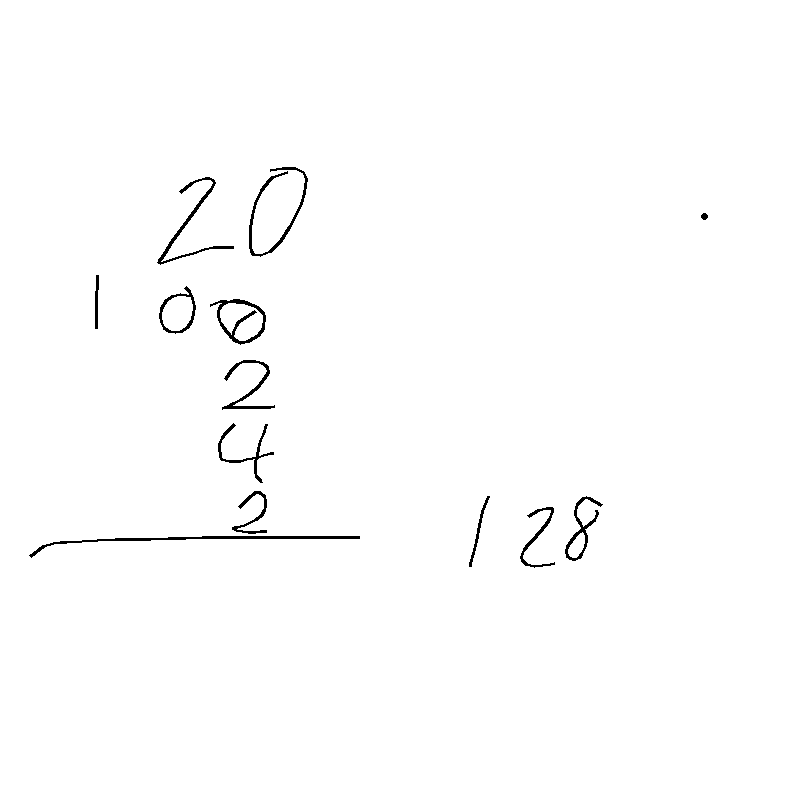 20
100
2
4
2
128